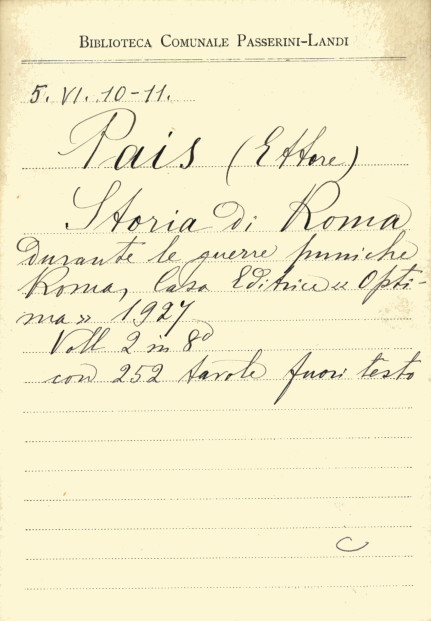 BIBLIOTECA COMUNALE PASSERINI-LANDI
5. VI. 10-11.
Pais (Ettore)
Storia di Roma
durante le guerre puniche
Roma, Casa Editrice « Opti-
ma » 1927
Voll 2 in 8º
con 252 tavole fuori testo
C